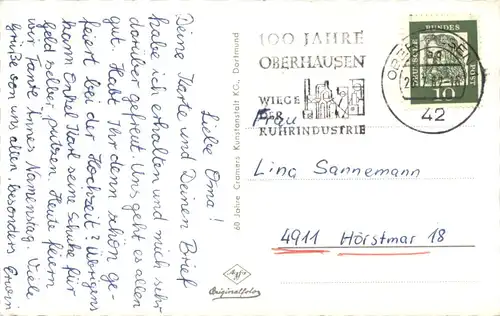 Liebe Oma!
Deine Karte und Deinen Brief
habe ich erhalten und mich sehr
darüber gefreut. Uns geht es allen
gut. Habt Ihr denn schön ge-
feiert bei der Hochzeit? Übrigens
kann Onkel Karl seine Schuhe für
Geld selber putzen. Heute feiern
wir Tante Annes Namenstag. Viele
Grüße von uns allen besonders Erwin
60 Jahre Cramers Kunstanstalt KG., Dortmund
Agfa
Originalfoto
100 JAHRE
OBERHAUSEN
WIEGE
DER
RUHRINDUSTRIE
42
DEUTSCHE BUNDESPOST
10
Frau
Lina Sannemann
4911 Hörstmar 18